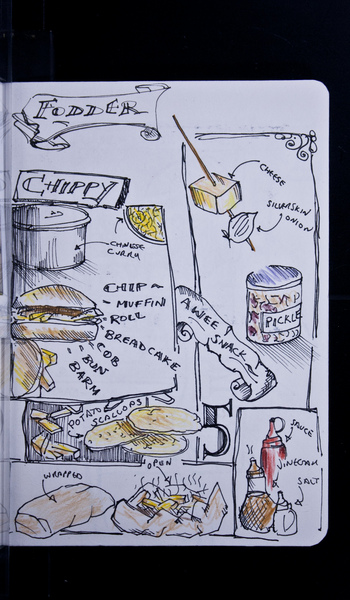 FODDER
CHIPPY
CHINESE
CURRY
CHIP ~
- MUFFIN
ROLL
BREADCAKE
COB
BUN
BARM
CHEESE
SILVERSKIN
ONION
PICKLE
A WEE SNACK
POTATO
SCALLOPS
OPEN
WRAPPED
SAUCE
VINEGAR
SALT